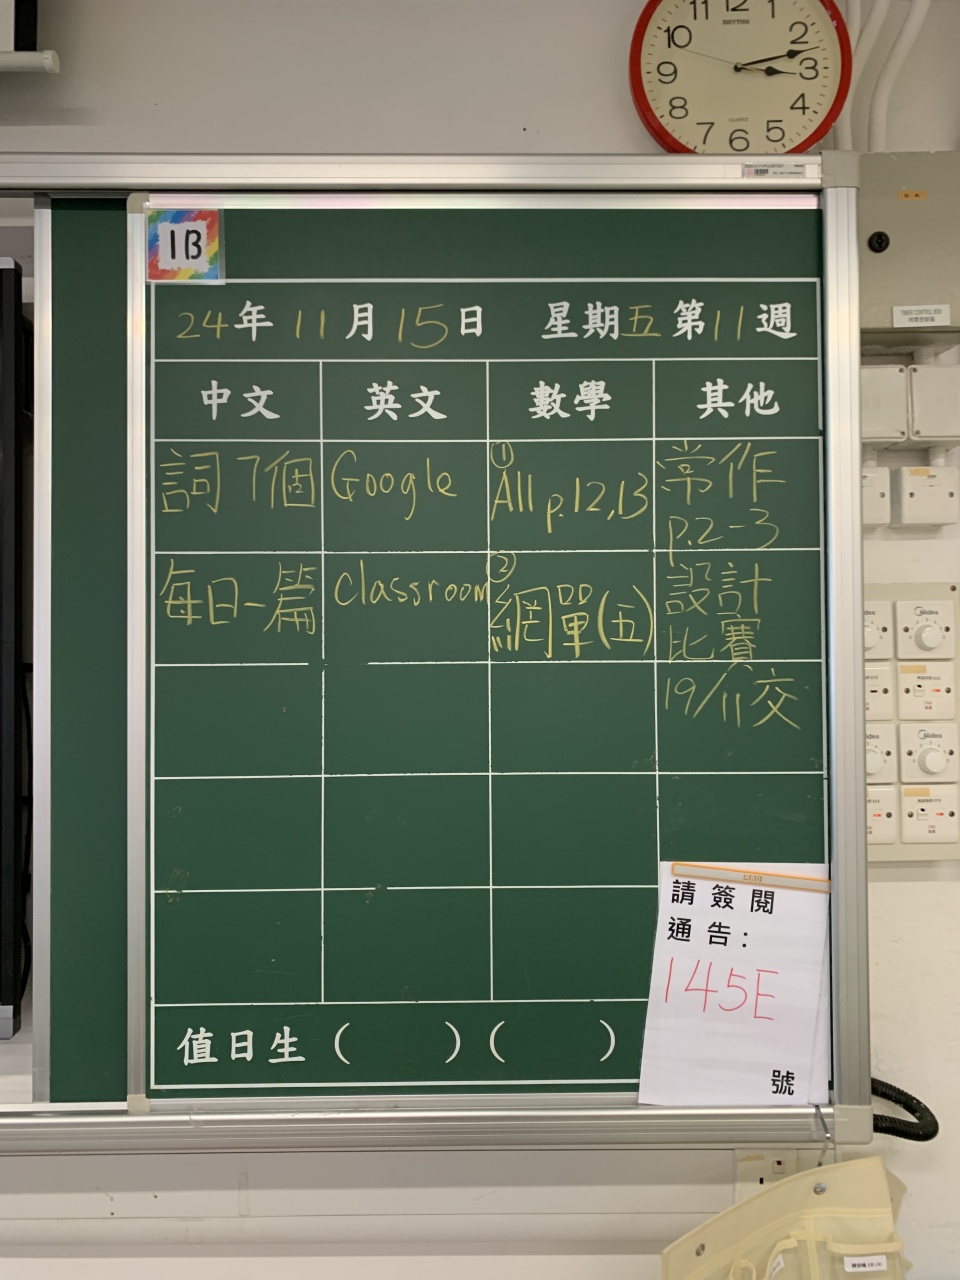 11 12 1
10 2
9 3
8 4
7 6 5
RHYTHM
QUARTZ
1B
24年11月15日 星期五第11週
中文 英文 數學 其他
詞7個 Google ①All p.12,13 常作
p.2-3
每日一篇 classroom ②網單(五) 設計
比賽
19/11交
請簽閱
通告:
145E
號
值日生 ( ) ( )
TIMER CONTROL BOX
時間控制箱
Midea
Midea